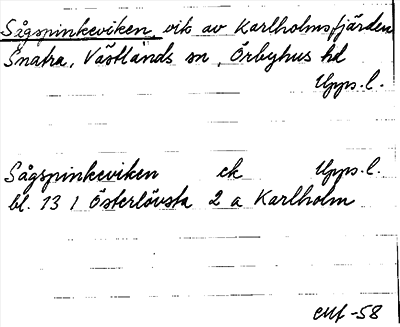 Sågspinkeviken, vik av Karlholmsfjärden
Snatra, Västlands sn, Örbyhus hd
Upps.l.
Sågspinkeviken ek Upps.l.
bl. 13 I Österlövsta 2 a Karlholm
-58